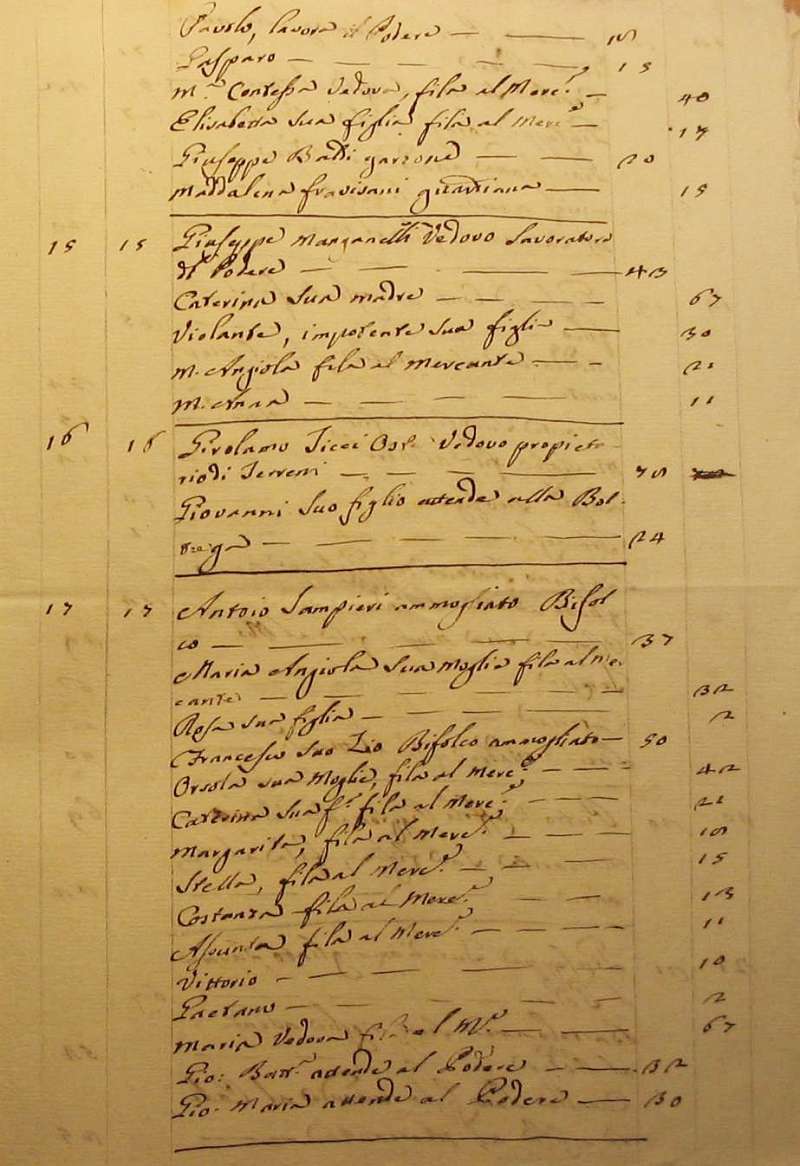 Paolo, lavora il Podere — — 18
Gasparo — — — — 15
M.ª Contessa Vedova, fila al Merc.e — 40
Elisabetta sua figlia fila al Merc.e — 17
Giuseppe garzone — — 20
Maddalena guardiana — 15
15 15 Giuseppe Manganelli Vedovo Lavoratore
di Podere — — — — 43
Caterina sua madre — — — — 67
Violante, impotente sua figlia — 30
M. Angiola fila al Mercante — — 21
M. Anna — — — — 11
16 16 Girolamo Vedovo propieta-
rio di Terreni — — — — 78
Giovanni suo figlio attende alla Bot-
tega — — — — 24
17 17 Antoio Sampieri ammogliato Bifol
co — — — — 37
Maria Angiola sua moglie fila al Mer
cante — — — — 32
Rosa sua figlia — — — — 2
Francesco suo Zio Bifolco ammogliato — 50
Orsola sua Moglie, fila al Merc.e — — 42
Caterina sua f.ª fila al Merc.e — — — 22
Margarita, fila al Merc.e — — — 18
Stella, fila al Merc.e — — — 15
Costanza fila al Merc.e — — — 13
Assunta fila al Merc.e — — — 11
Vittorio — — — — 10
Gaetano — — — — 2
Maria Vedova fila al M.e — — 67
Gio: Batt.ª attende al Podere — — 32
Gio. Maria attende al Podere — 30